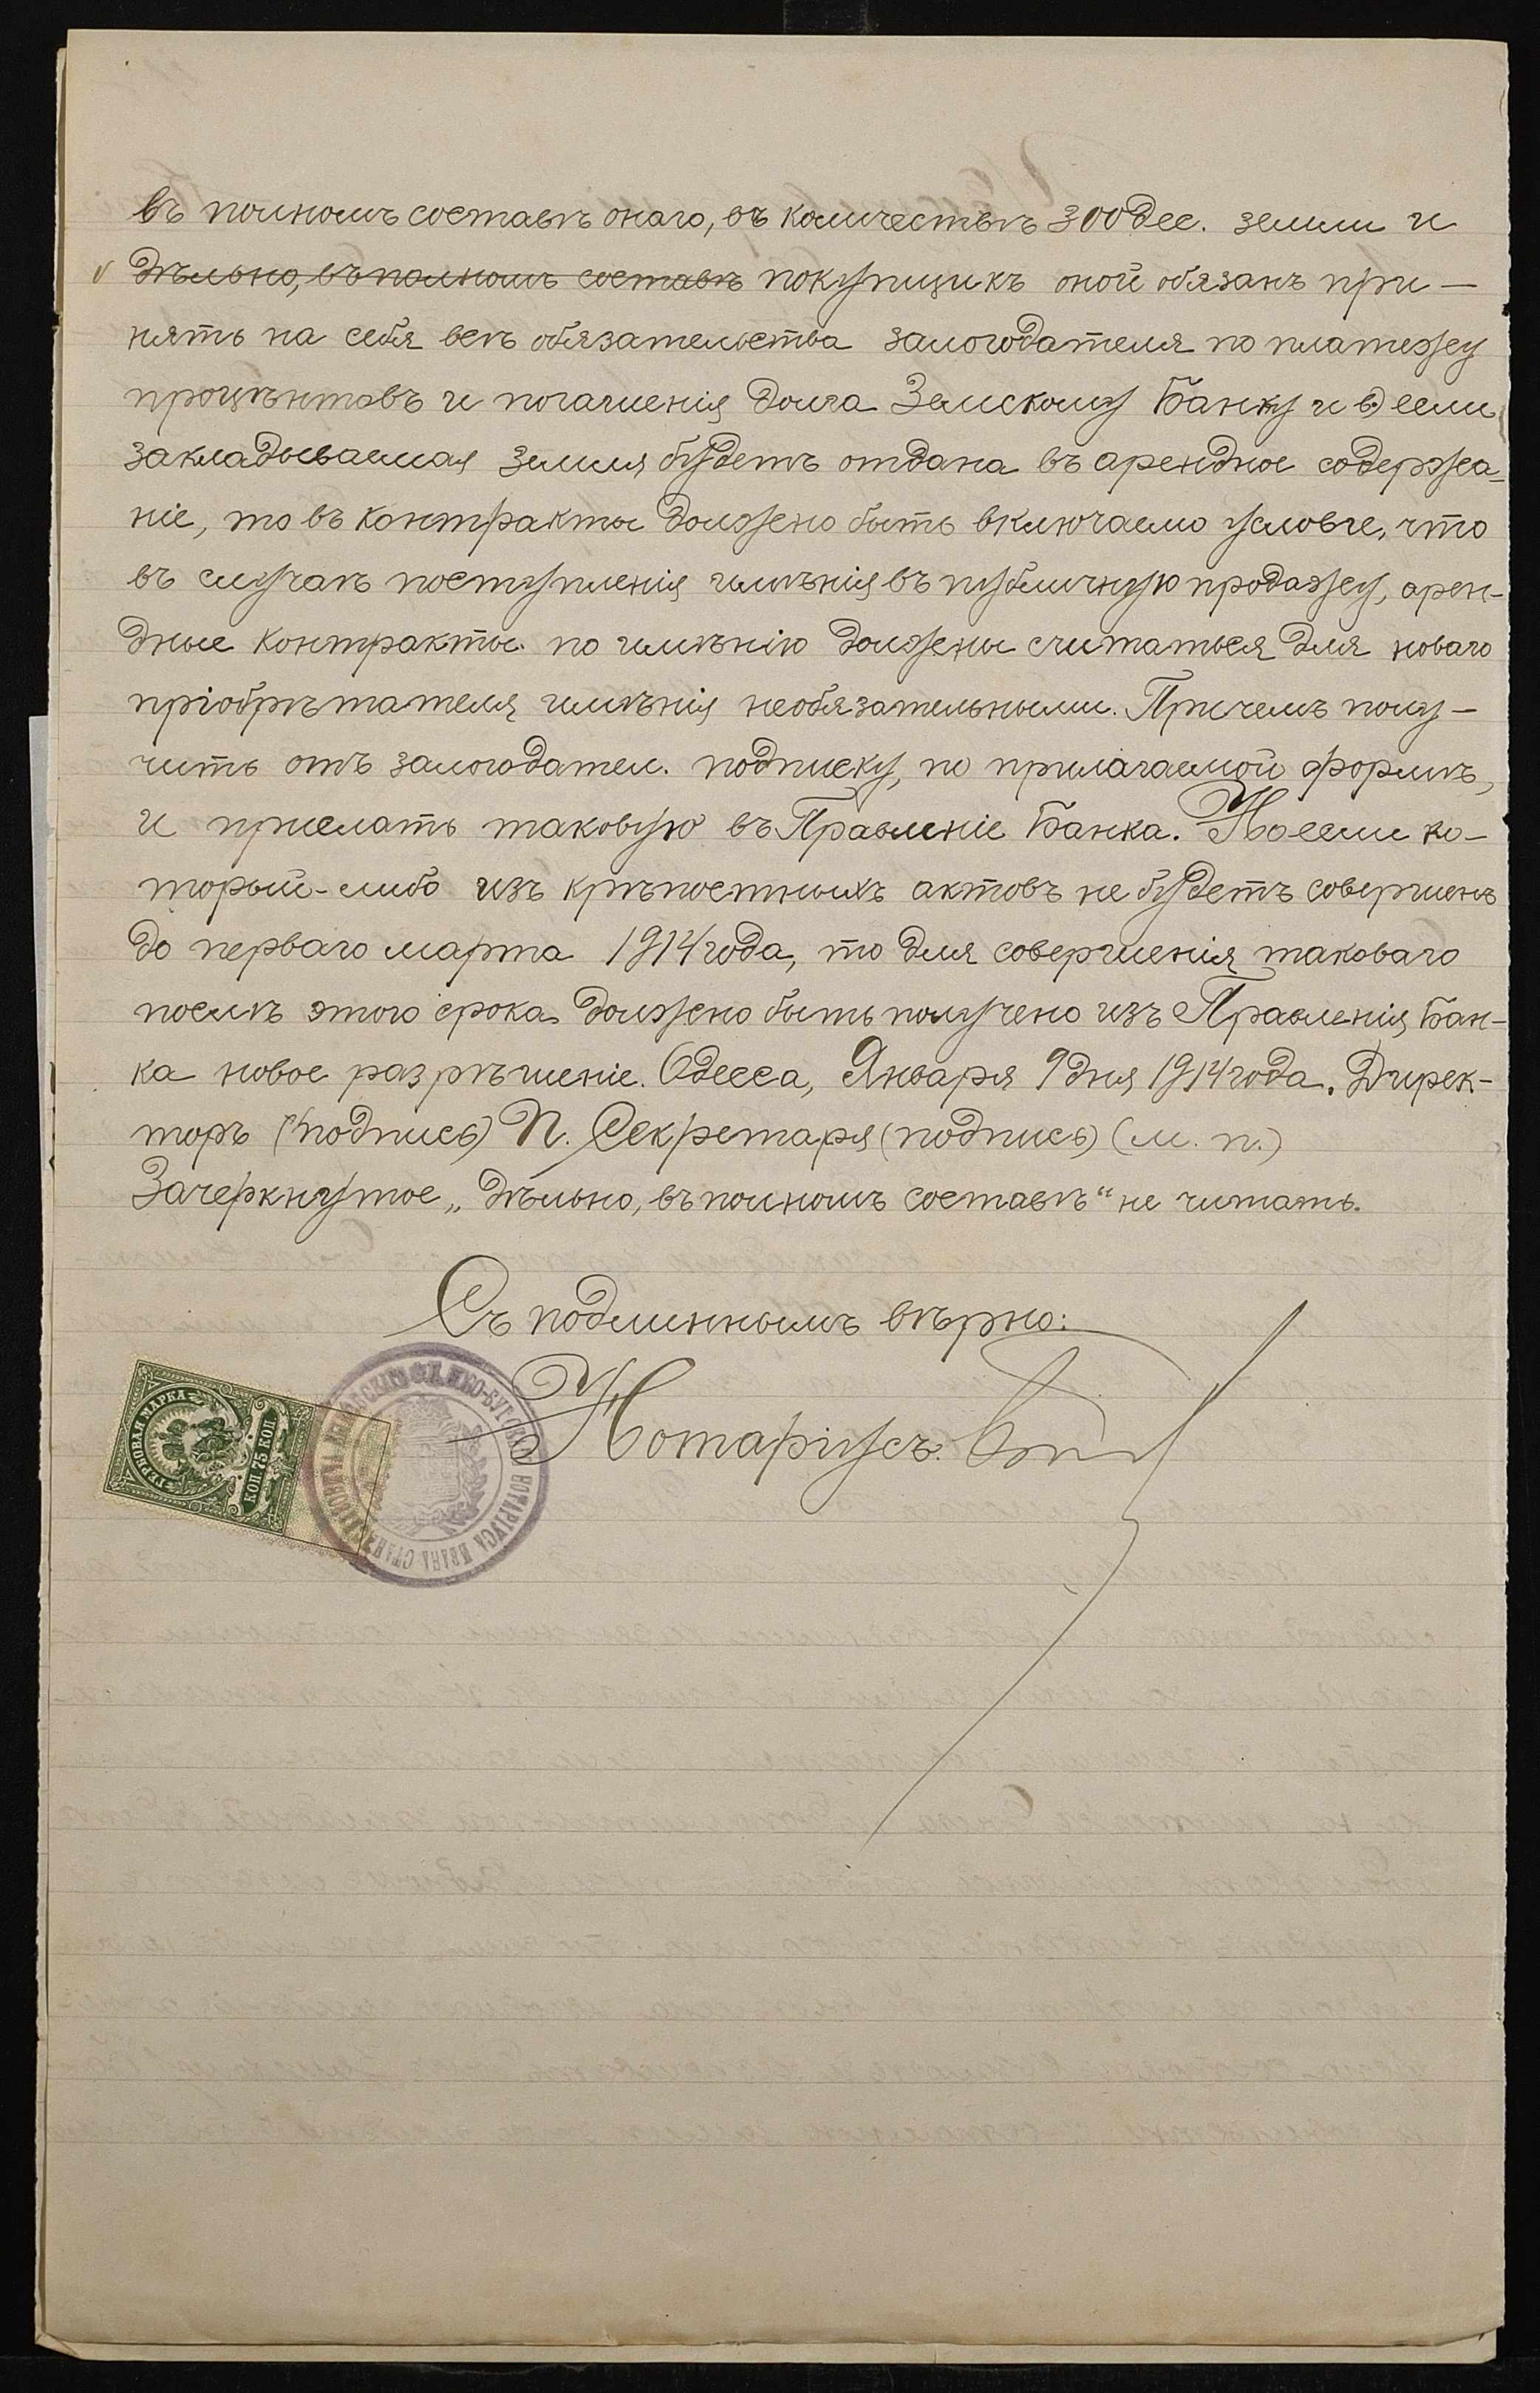 въ полномъ составѣ онаго, въ количествѣ 300 дес. земли и
дѣльно, въ полномъ составѣ покупщикъ оной обязанъ при-
нять на себя всѣ обязательства залогодателя по платежу
процѣнтовъ и погашенія долга Земскому Банку и в) если
закладываемая земля будетъ отдана въ арендное содержа-
ніе, то въ контракты должено быть включаемо условіе, что
въ случаѣ поступленія имѣнія въ публичную продажу, арен-
дные контракты по имѣнію должены считаться для новаго
пріобрѣтателя имѣнія необязательными. Причемъ полу-
чить отъ залогодател. подписку, по прилагаемой формѣ,
и прислать таковую въ Правленіе Банка. Но если ко-
торый-либо изъ крѣпостныхъ актовъ не будетъ совершенъ
до перваго марта 1914 года, то для совершенія таковаго
послѣ этого срока должено быть получено изъ Правленія Бан-
ка новое разрѣшеніе. Одесса, Января 9 дня 1914 года. Дирек-
торъ (подпись) П. Секретаря (подпись) (м. п.)
Зачеркнутое „дѣльно, въ полномъ составѣ“ не читать.
Съ подлиннымъ вѣрно:
Нотаріусъ
ГЕРБОВАЯ МАРКА
КОП 75 КОП
НОТАРІУСА ИВАНА